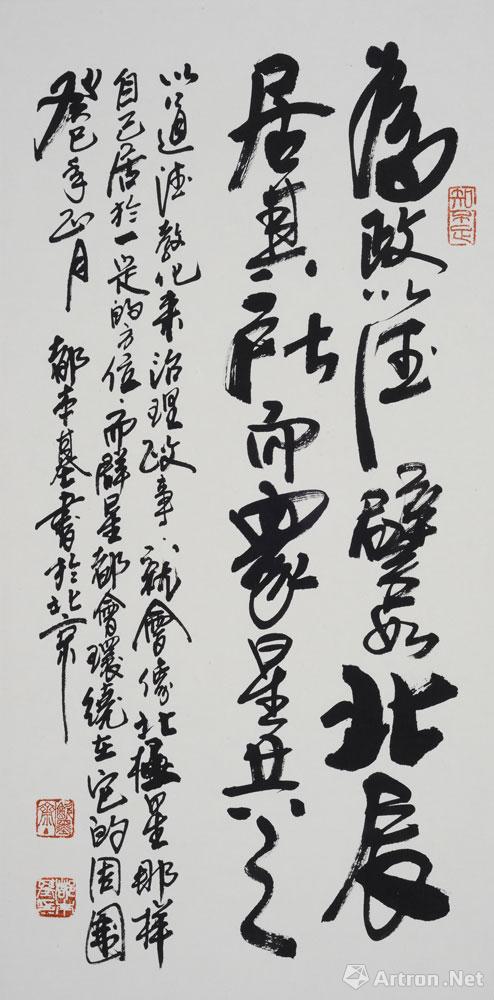 為政以德譬如北辰
居其所而眾星共之
以道德教化來治理政事就會像北極星那样
自己居於一定的方位而群星都會環繞在它的周圍
癸巳年正月 都本基書於北京
Artron.Net